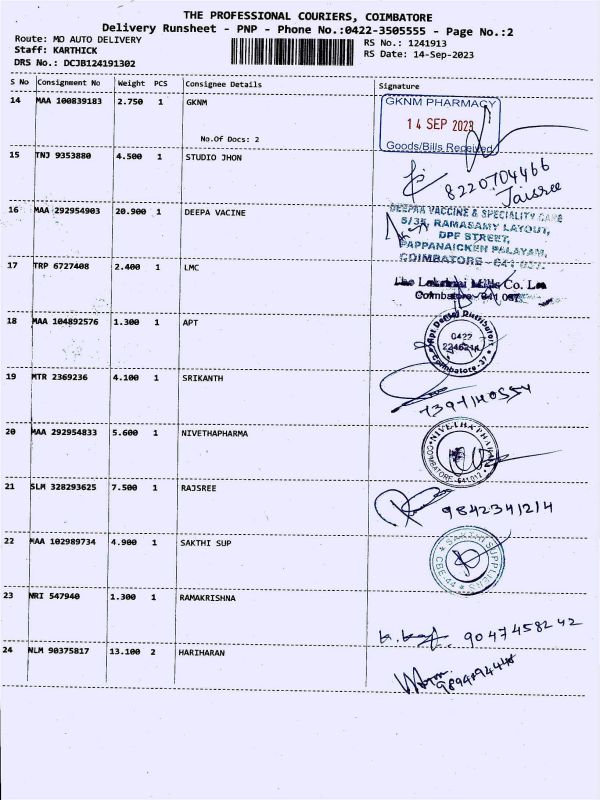 THE PROFESSIONAL COURIERS, COIMBATORE
Delivery Runsheet - PNP - Phone No.:0422-3505555 - Page No.:2
Route: MD AUTO DELIVERY RS No.: 1241913
Staff: KARTHICK RS Date: 14-Sep-2023
DRS No.: DCJB124191302
S No Consignment No Weight PCS Consignee Details Signature
14 MAA 100839183 2.750 1 GKNM
GKNM PHARMACY
14 SEP 2023
No.Of Docs: 2
Goods/Bills Received
15 TNJ 9353880 4.500 1 STUDIO JHON
8220704466
Jaisree
16 MAA 292954903 20.900 1 DEEPA VACINE
DEEPAA VACCINE & SPECIALITY CARE
5/35, RAMASAMY LAYOUT,
DPF STREET,
PAPPANAICKEN PALAYAM,
COIMBATORE - 641 037.
17 TRP 6727408 2.400 1 LMC
The Lakshmi Mills Co.
Coimbatore-641 037
18 MAA 104892576 1.300 1 APT
Apt Dental Distributors
0422
Coimbatore-37
19 MTR 2369236 4.100 1 SRIKANTH
7397140554
20 MAA 292954833 5.600 1 NIVETHAPHARMA
NIVETHA PHARMA
COIMBATORE-641 012
21 SLM 328293625 7.500 1 RAJSREE
9842341214
22 MAA 102989734 4.900 1 SAKTHI SUP
SAKTHI SUPPLIERS
CBE-44
23 NRI 547940 1.300 1 RAMAKRISHNA
9047458242
24 NLM 90375817 13.100 2 HARIHARAN